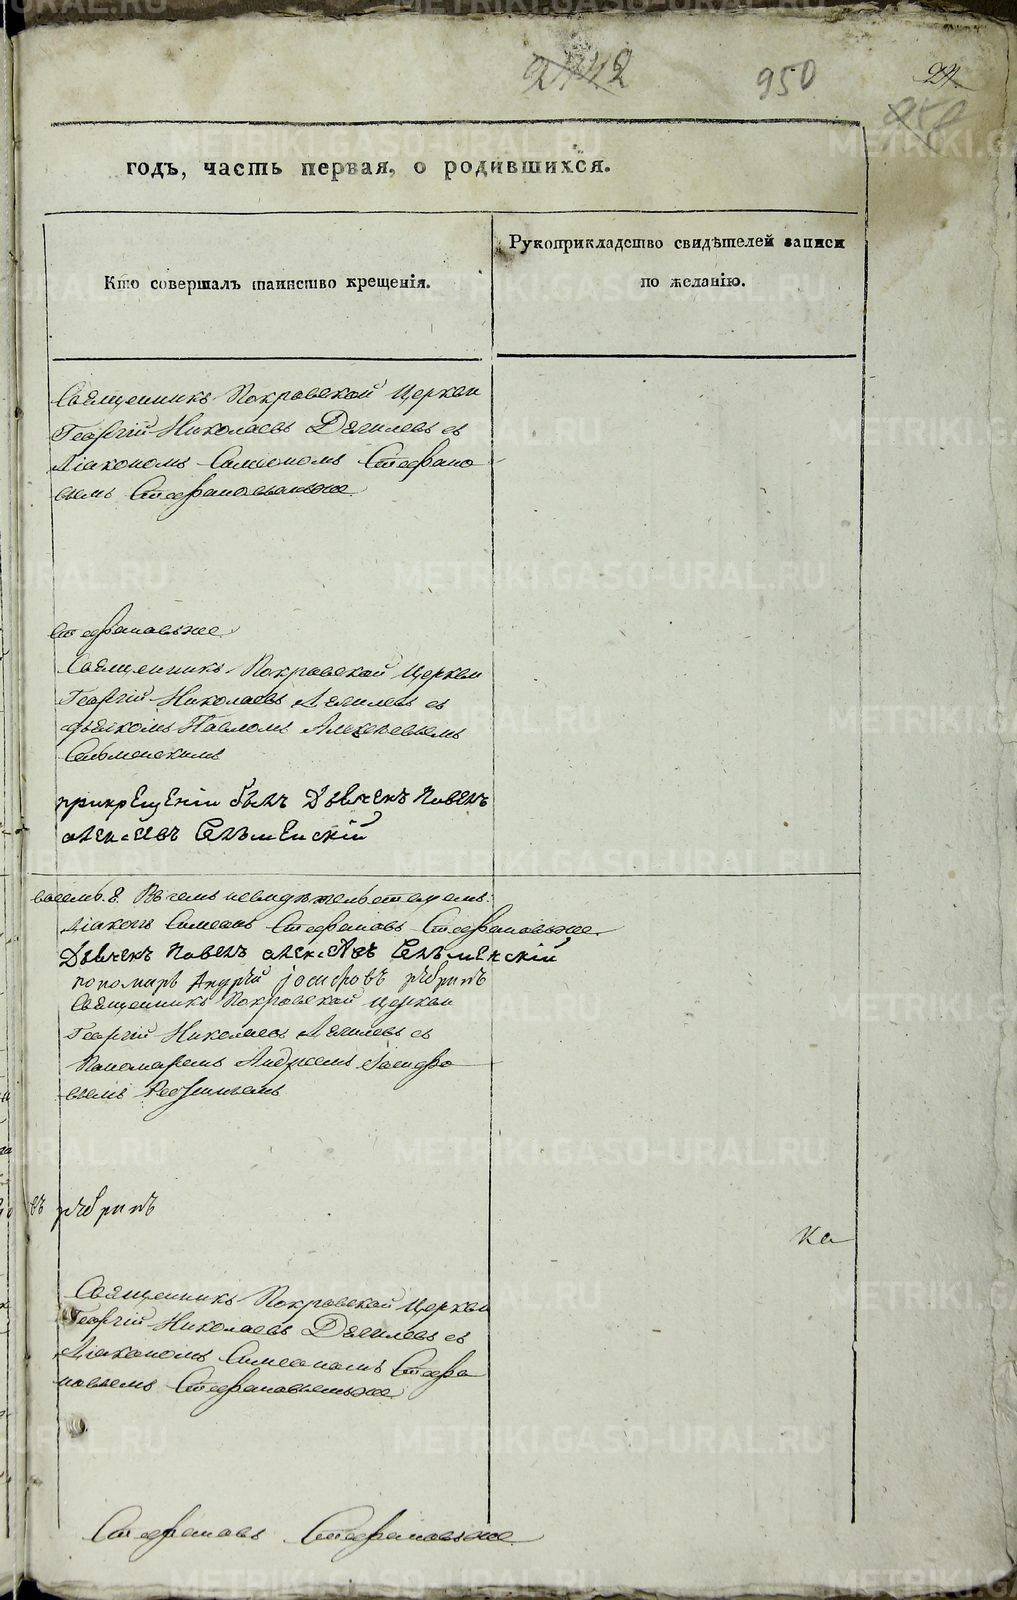 950
годъ, часть первая, о родившихся.
Кто совершалъ таинство крещенія.
Рукоприкладство свидѣтелей записи
по желанію.
Священникъ Покровской Церкви
Георгій Николаевъ Дягилевъ съ
Діакономъ Симеономъ Стефано
вымъ Стефановымъ же
Стефановъ же
Священникъ Покровской Церкви
Георгій Николаевъ Дягилевъ съ
дьячкомъ Павломъ Алексѣевымъ
Сельменскимъ
прикрещеніи былъ Дьячекъ Павелъ
Сельменскій
восемь. 8. Въ чемъ и свидѣтельствуемъ:
Діаконъ Симеонъ Стефановъ Стефановъ же
Дьячекъ Павелъ Сельменскій
пономарь Андрей
Священникъ Покровской Церкви
Георгій Николаевъ Дягилевъ съ
Пономаремъ Андреемъ
вымъ
въ
Ка
Священникъ Покровской Церкви
Георгій Николаевъ Дягилевъ съ
Діакономъ Симеономъ Стефа
новымъ Стефановымъ же
Стефановъ Стефановъ же
METRIKI.GASO-URAL.RU